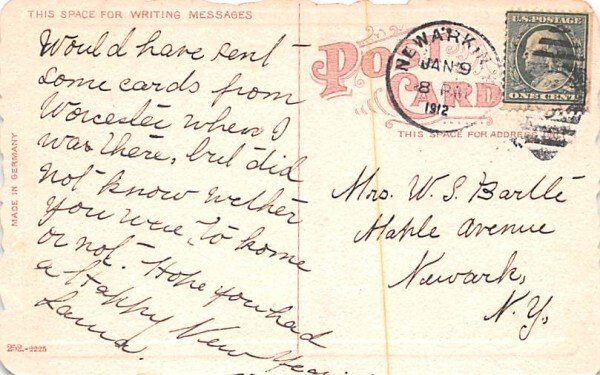 THIS SPACE FOR WRITING MESSAGES
Would have sent
some cards from
Worcester when I
was there, but did
not know wether
you were to home
or not. Hope you had
a Happy New Year.
Laura.
MADE IN GERMANY
252-2225
Post
Card
THIS SPACE FOR ADDRESS
NEWARK
JAN 9
8 PM
1912
U.S. POSTAGE
ONE CENT
Mrs. W. S. Bartle
Maple Avenue
Newark,
N.Y.